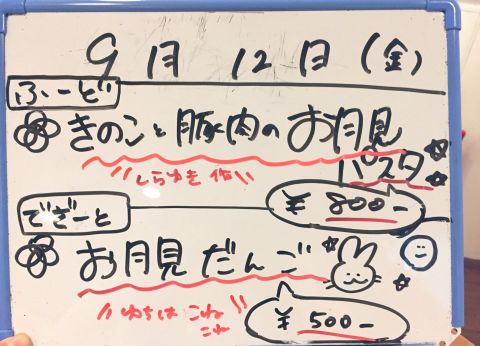 9月 12日(金)
ふーど
きのこと豚肉のお月見
パスタ
"しらゆき作"
¥ 800-
でざーと
お月見だんご
こねこね
¥ 500-